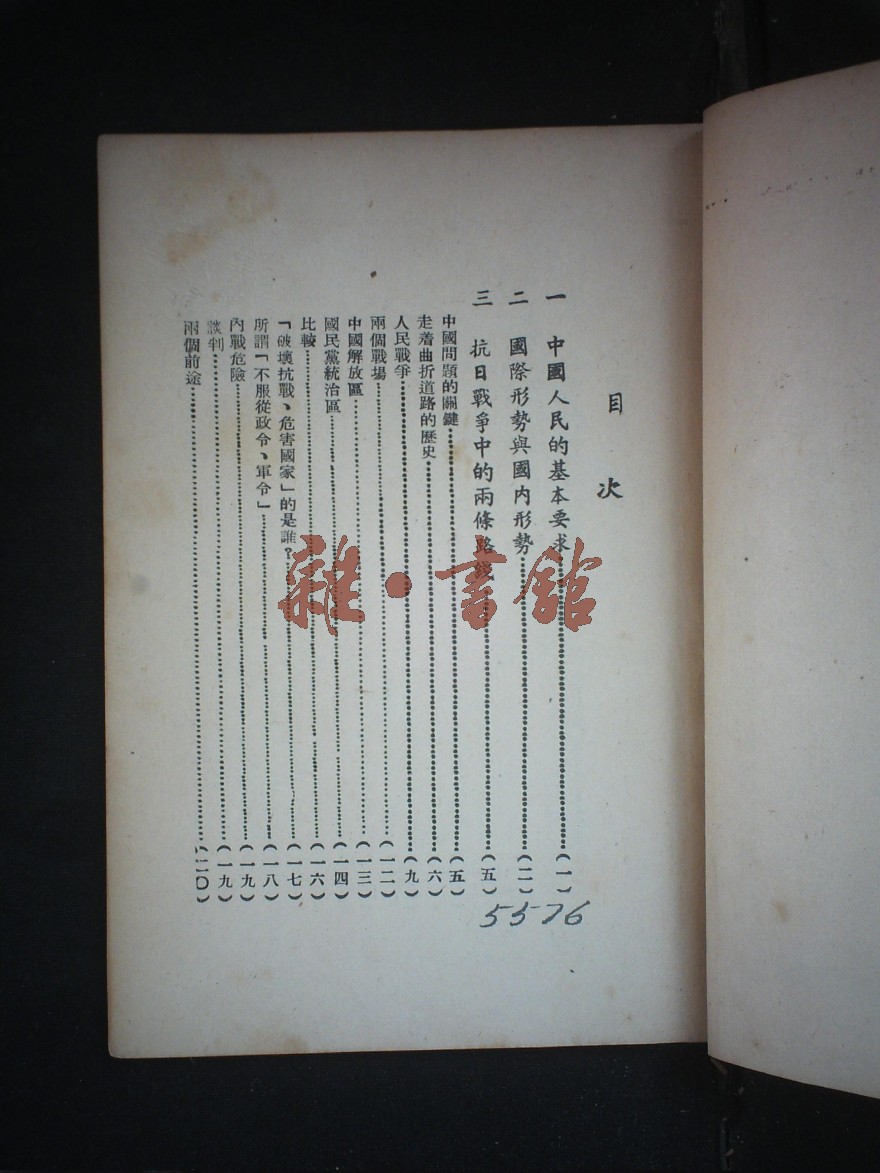 目次
一 中國人民的基本要求……(一)
二 國際形勢與國内形勢……(二)
三 抗日戰爭中的兩條路綫……(五)
中國問題的關鍵……(五)
走着曲折道路的歷史……(六)
人民戰爭……(九)
兩個戰場……(一二)
中國解放區……(一三)
國民黨統治區……(一四)
比較……(一六)
「破壞抗戰、危害國家」的是誰?……(一七)
所謂「不服從政令、軍令」……(一八)
內戰危險……(一九)
談判……(一九)
兩個前途……(二〇)
5576
雜·書館